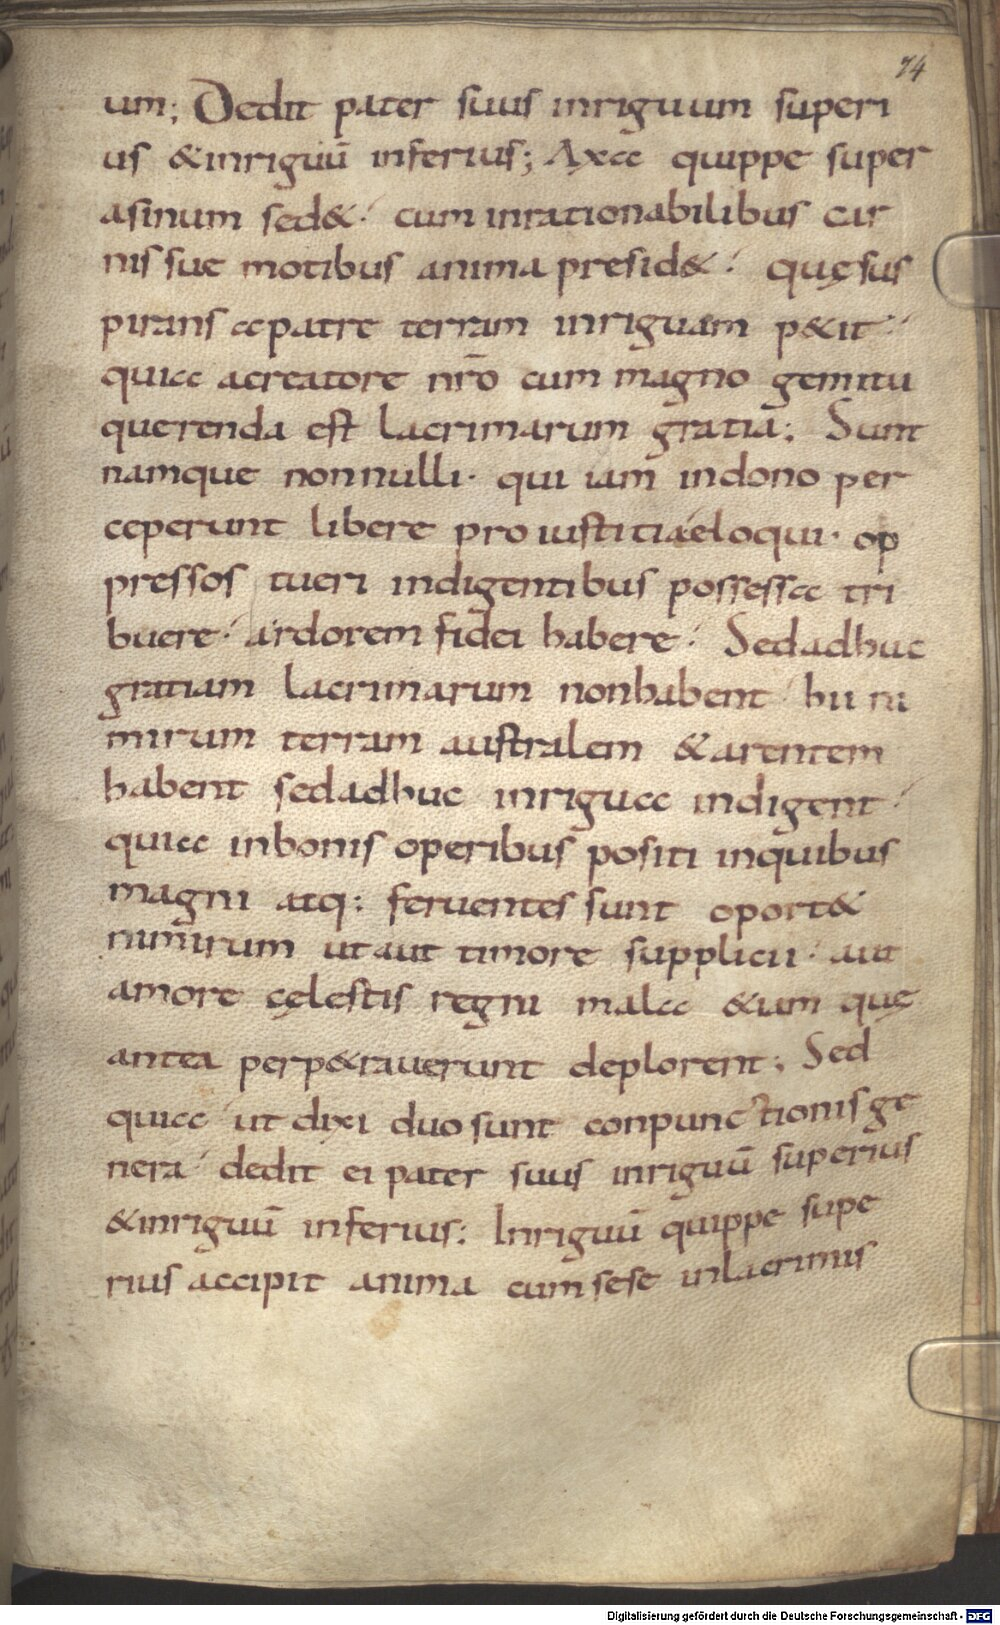 74
um; Dedit pater suus inriguum superi
us & inriguū inferius; Axa quippe super
asinum sed& cum inrationabilibus car
nis sue motibus anima presid& quę sus
pirans a patre terram inriguam p&it
quia a creatore nr̄o cum magno gemitu
querenda est lacrimarum gratia; Sunt
namque nonnulli· qui iam in dono per
ceperunt libere pro iustitia eloqui· op
pressos tueri indigentibus possessa tri
buere ardorem fidei habere Sed adhuc
gratiam lacrimarum non habent hii ni
mirum terram australem & arentem
habent sed adhuc inrigua indigent
quia in bonis operibus positi in quibus
magni atq: feruentes sunt oport&
nimirum ut aut timore supplicii· aut
amore cęlestis regni mala &iam quę
antea perp&rauerunt deplorent; Sed
quia ut dixi duo sunt conpunctionis ge
nera dedit ei pater suus inriguū superius
& inriguū inferius: Inriguū quippe supe
rius accipit anima cum sese in lacrimis
Digitalisierung gefördert durch die Deutsche Forschungsgemeinschaft - DFG